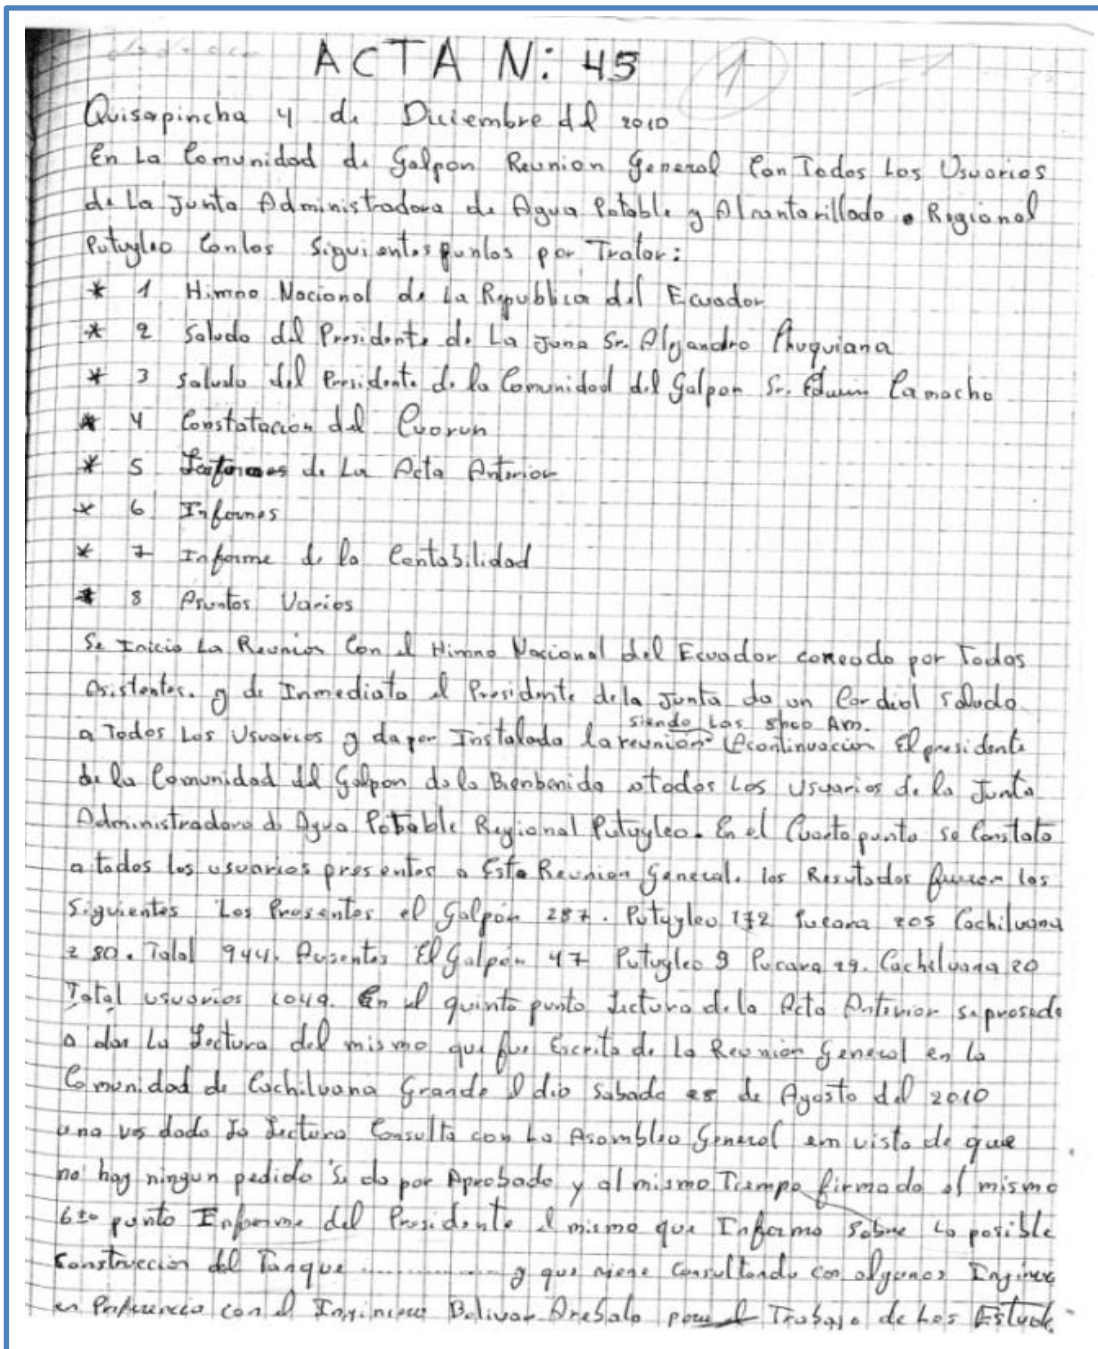 ACTA N: 45
1
Quisapincha 4 de Diciembre del 2010
En La Comunidad de Galpon Reunion General Con Todos Los Usuarios
de La Junta Administradora de Agua Potable y Alcantarillado Regional
Putugleo Con los Siguientes puntos por Tratar:
* 1 Himno Nacional de La Republica del Ecuador
* 2 Saludo del Presidente de La Juna Sr. Alejandro Chuquiana
* 3 Saludo del Presidente de la Comunidad del Galpon Sr. Edwin Camacho
* 4 Constatacion del Cuorun
* 5 de La Acta Anterior
* 6 Informes
* 7 Informe de la Contabilidad
* 8 Asuntos Varios
Se Inicio La Reunion Con el Himno Nacional del Ecuador coreado por Todos
Asistentes. y de Inmediato el Presidente de la Junta da un Cordial Saludo
siendo Las Am.
a Todos Los Usuarios y da por Instalada la reunion Acontinuacion El presidente
de la Comunidad del Galpon da la Bienbenida a todos Los Usuarios de la Junta
Administradora de Agua Potable Regional Putugleo. En el Cuarto punto se Constato
a todos los usuarios presentes a Esta Reunion General. los Resutados fueron los
Siguientes Los Presentes el Galpón 287. Putugleo 172 Pucara 205 Cachiluana
280. Total 944. Ausentes El Galpón 47 Putugleo 9 Pucara 29. Cachiluana 20
Total usuarios 1049. En el quinto punto Lectura de la Acta Anterior se prosede
a dar La Lectura del mismo que fue Escrita de La Reunión General en la
Comunidad de Cachiluana Grande el dia Sabado 28 de Agosto del 2010
una ves dado La Lectura Consulta con La Asamblea General em vista de que
no hay ningun pedido Se da por Aprobado y al mismo Tiempo firmado el mismo
6to punto Informe del Presidente el mismo que Informo Sobre La posible
Construccion del Tanque ............... y que viene Consultando con algunos
en Preferencia con el Inginiero Bolivar Arebalo para el Trabajo de Los